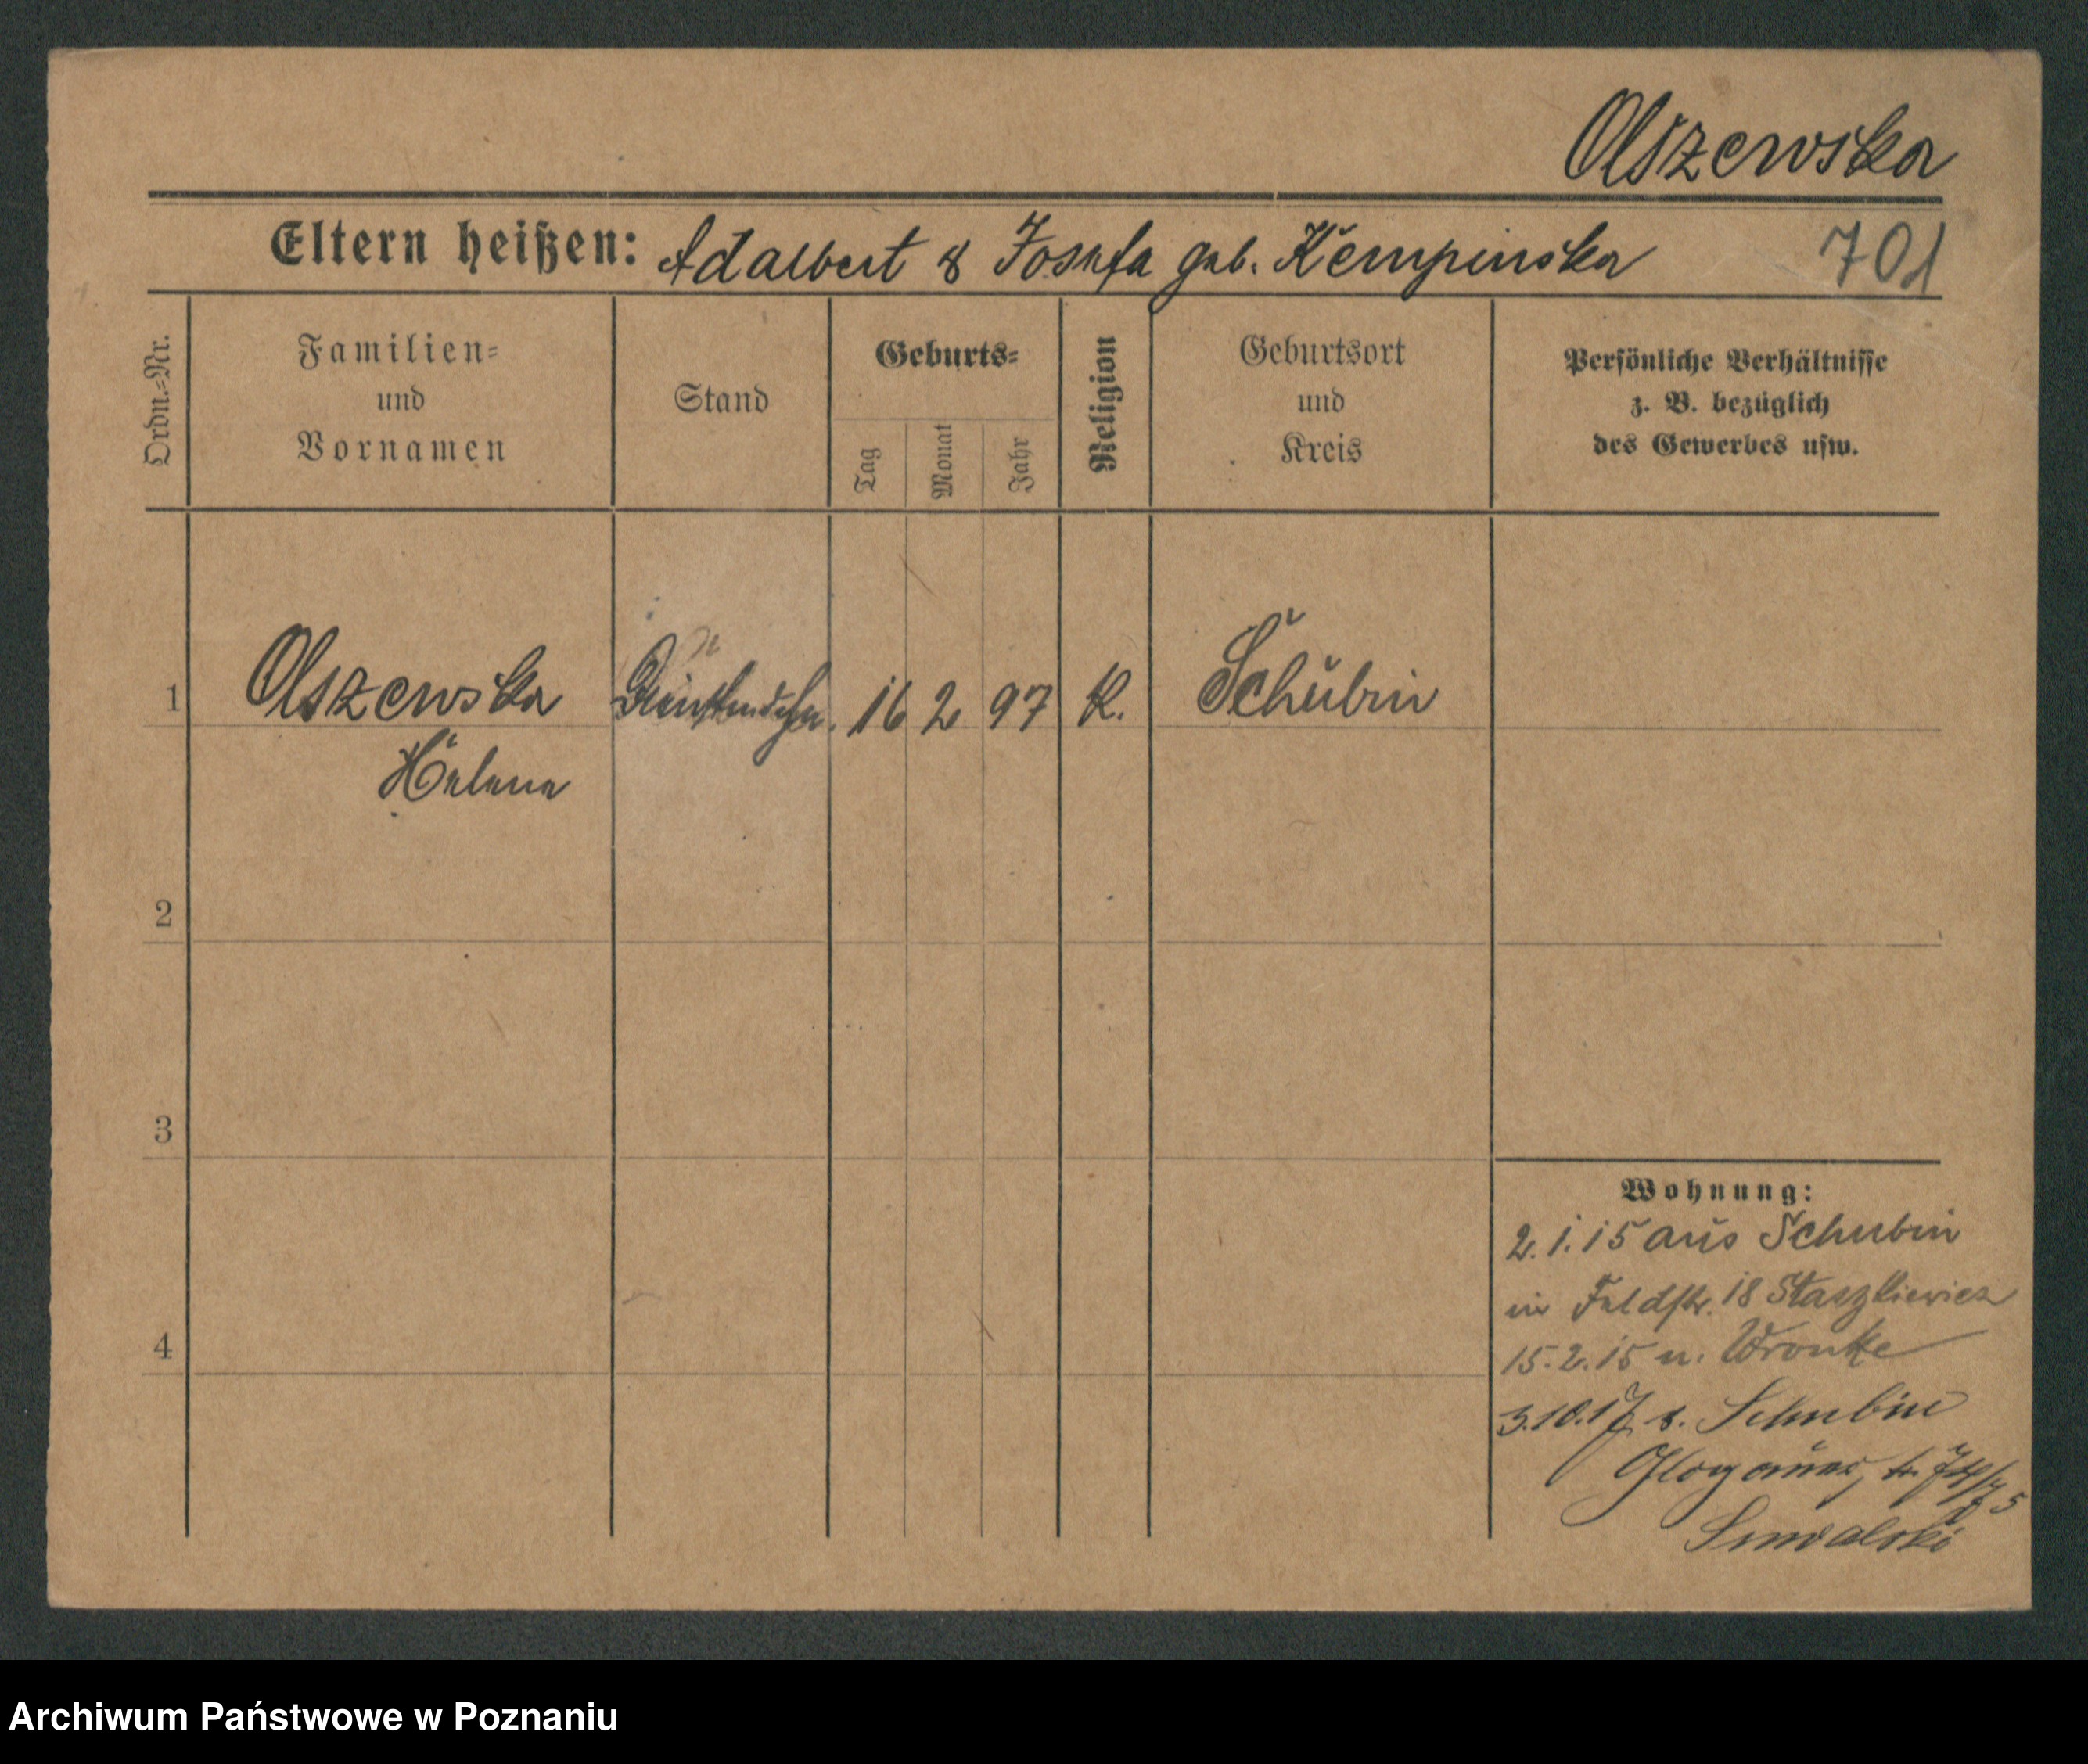 Olszewska
Eltern heißen: Adalbert & Josefa geb. Kempinska 701
Ordn.-Nr.
Familien-
und
Vornamen
Stand
Geburts-
Tag
Monat
Jahr
Religion
Geburtsort
und
Kreis
Persönliche Verhältnisse
z. B. bezüglich
des Gewerbes usw.
1 Olszewska 16 2 97 K. Schubin
Helena
2
3
4
Wohnung:
2.1.15 aus Schubin
in Feldstr. 18 Staszkiewicz
15.2.15 n. Wronke
3.10.17 v. Schubin
Glogauerstr.
Archiwum Państwowe w Poznaniu